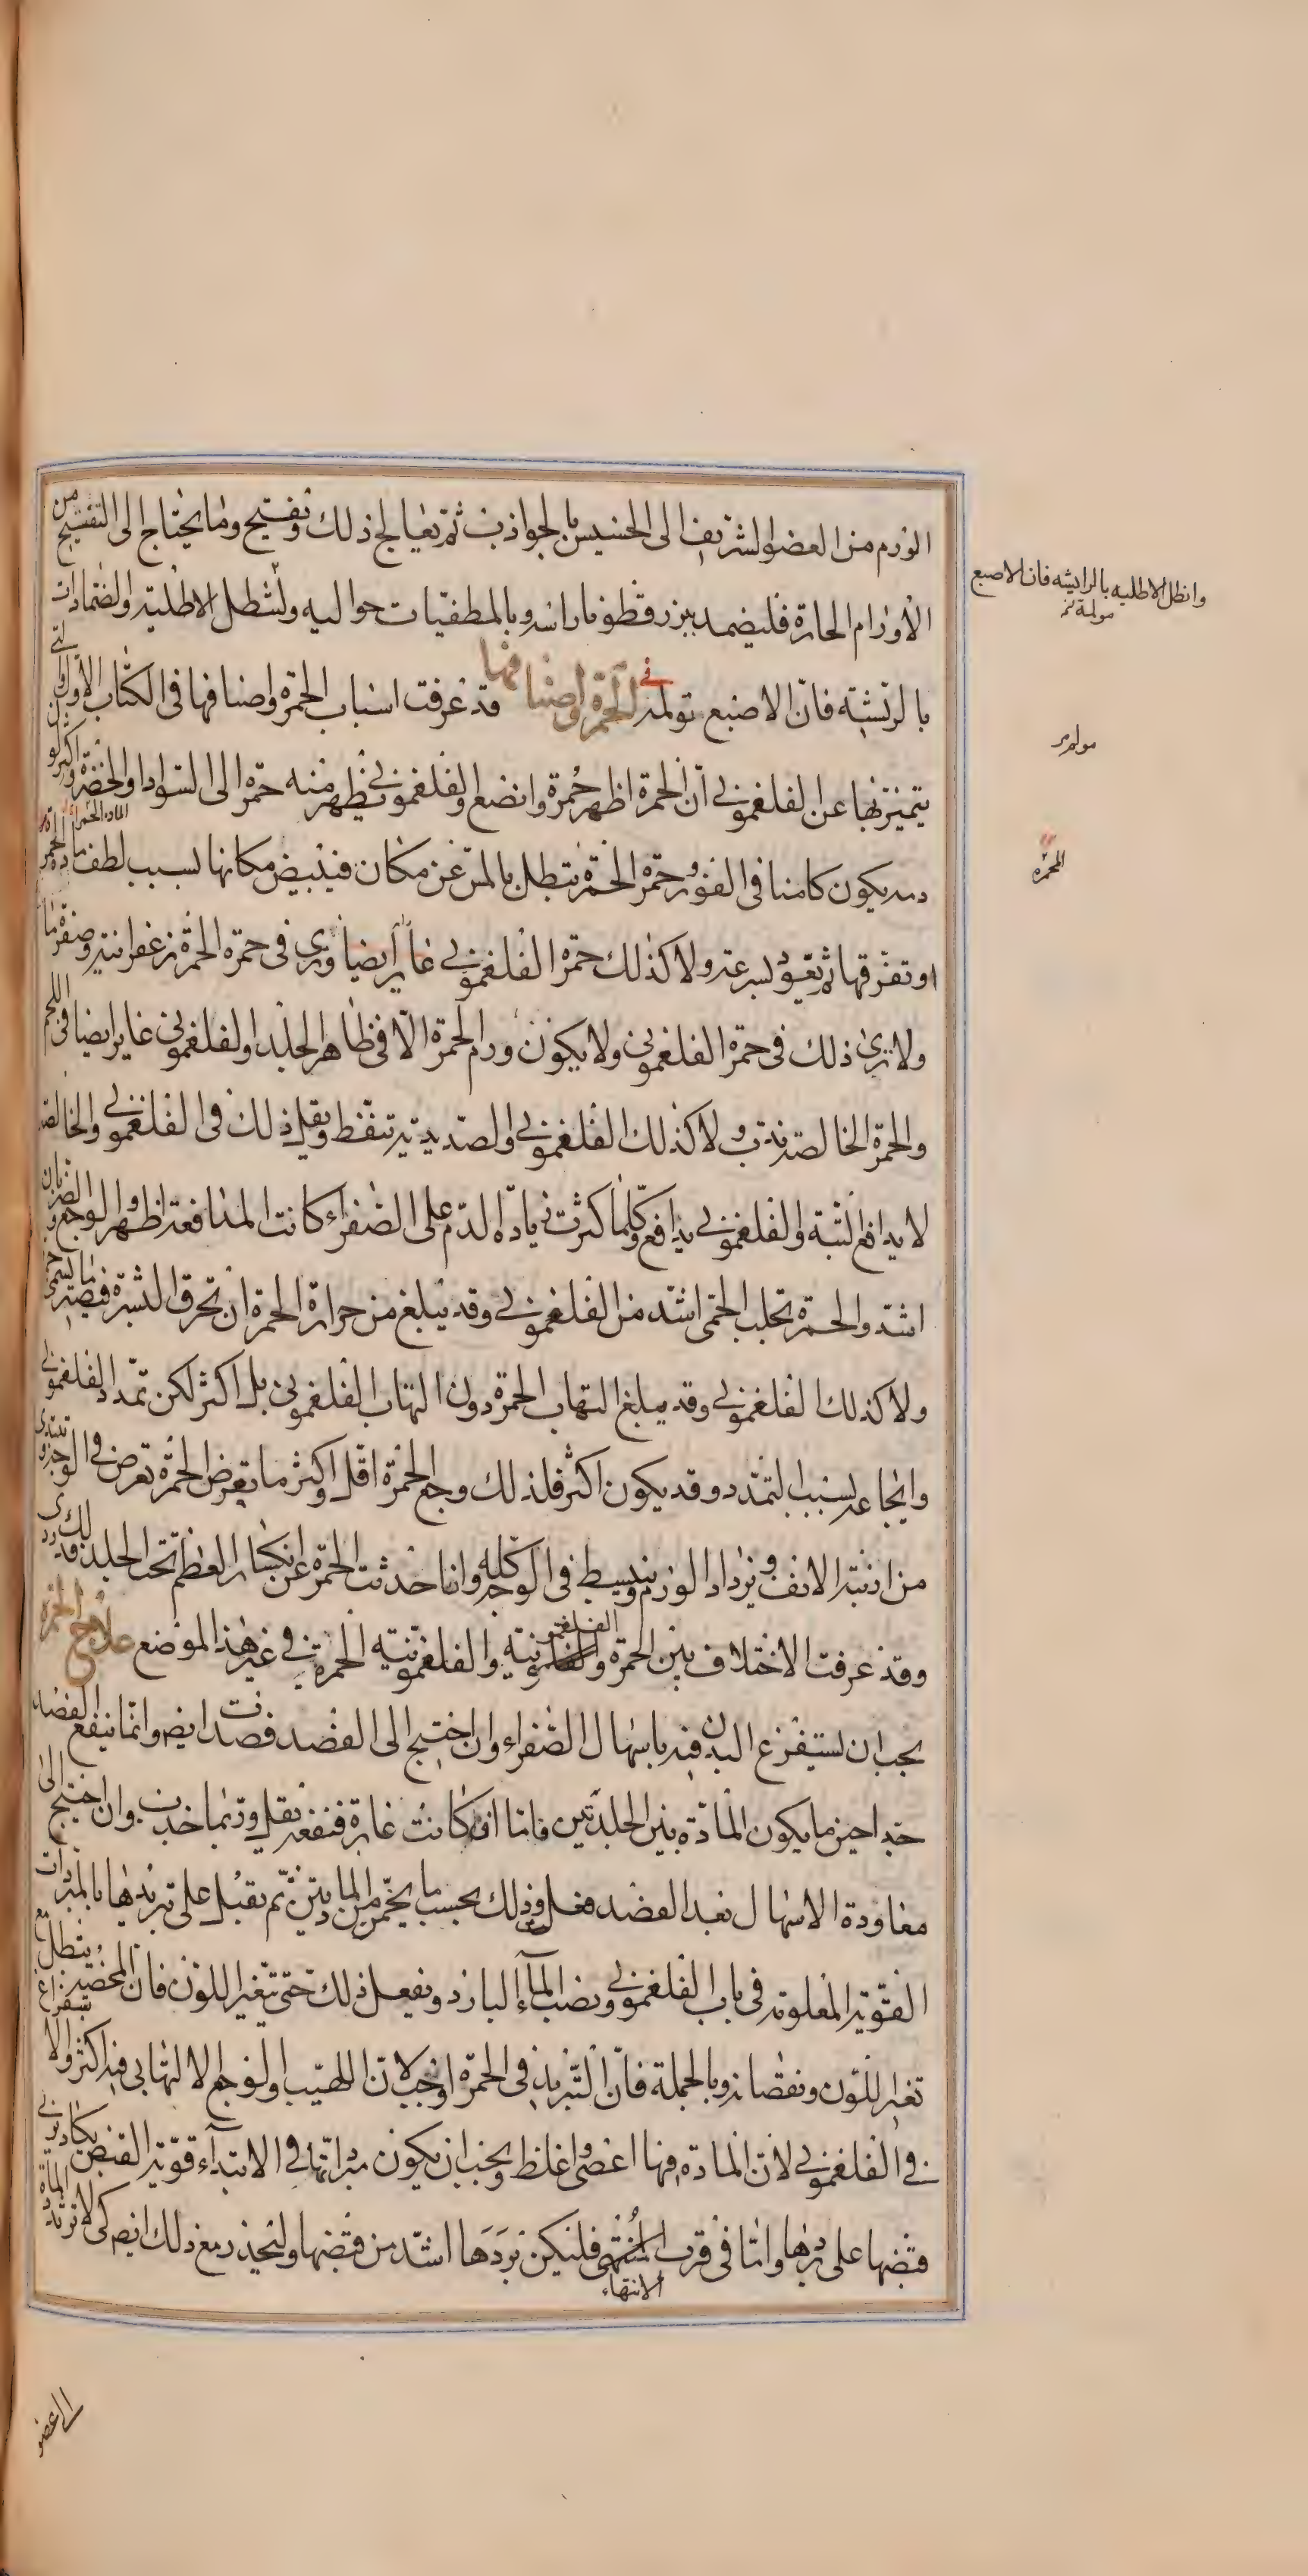 الورم من العضو الشريف الى الخسيس بالجواذب ثم تعالج ذلك وتفتيح وما يحتاج الى التفتيح من
الأورام الحارة فليضمد ببزر قطونا راسه وبالمطفيات حواليه ولتطل الاطلية والضمادات
بالريشة فان الاصبع تولمه في الحمرة واصنافها قد عرفت اسباب الحمرة واصنافها في الكتاب الاول والتي
يتميز بها عن الفلغموني ان الحمرة اظهر حمرة وانصع والفلغموني يظهر منه حمرة الى السواد او الخضرة واكثر لو
دمه يكون كامنا في الغور وحمرة الحمرة تبطل بالمس عن مكان فيبيض مكانها لسبب لطف مادة الحمرة
او تفرقها ثم تعود بسرعة ولا كذلك حمرة الفلغموني غاير ايضا وترى في حمرة الحمرة زعفرانية وصفرة ما
ولا ترى ذلك في حمرة الفلغموني ولا يكون ورم الحمرة الا في ظاهر الجلد والفلغموني غاير ايضا في اللحم
والحمرة الخالصة تدب ولا كذلك الفلغموني والصديدية تتنفط ويقل ذلك في الفلغموني والخالصة
لا يدافع البتة والفلغموني يدافع وكلما كثرت زيادة الدم على الصفراء كانت المدافعة اظهر والوجع والضربان
اشد والحمرة تجلب الحمى اشد من الفلغموني وقد يبلغ من حرارة الحمرة ان تحرق البشرة فيصير ما يسمى
ولا كذلك الفلغموني وقد يبلغ التهاب الحمرة دون التهاب الفلغموني بل اكثر لكن تمدد الفلغموني
وايجاعه بسبب التمدد وقد يكون اكثر فلذلك وجع الحمرة اقل واكثر ما تعرض الحمرة تعرض في الوجه وتبتدي
من ارنبة الانف ويزداد الورم وينبسط في الوجه كله واذا حدثت الحمرة عن انكسار العظم تحت الجلد فذلك ردي
وقد عرفت الاختلاف بين الحمرة والفلغمونية والفلغمونية الحمرية في غير هذا الموضع علاج الحمرة
يجب ان يستفرغ البدن فيه باسهال الصفراء وان احتيج الى الفصد فصدت ايضا وانما ينفع الفصد
جدا حين ما يكون المادة بين الجلدتين فاما ان كانت غايرة فنفعه يقل وربما جذب وان احتيج الى
معاودة الاسهال بعد الفصد فعل وذلك بحسب ما يخمن من المادتين ثم تقبل على تبريدها بالمبردات
القوية المعلومة في باب الفلغموني وبصب الماء البارد ويفعل ذلك حتى يتغير اللون فان المحضة تبطل مع
تغير اللون ونقصانه وبالجملة فان التبريد في الحمرة اوجب لان اللهيب والوجع الالتهابي فيه اكثر والاستفراغ
في الفلغموني لان المادة فيها اعصى واغلظ ويجب ان يكون مبرداتها في الابتداء قوية القبض يكاد يربي
قبضها على بردها واما في قرب المنتهى فليكن بردها اشد من قبضها وليحذر مع ذلك ايضا كي لا ترتد المادة
الانتهاء
وانظل الاطليه بالرايشه فان الاصبع
مولمة نخ
مولمه
المحمرة
الى عضو